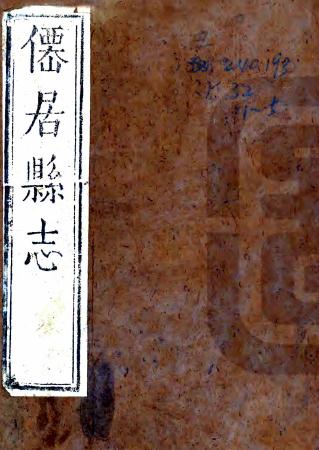 僊居縣志
240.193
32
1~5